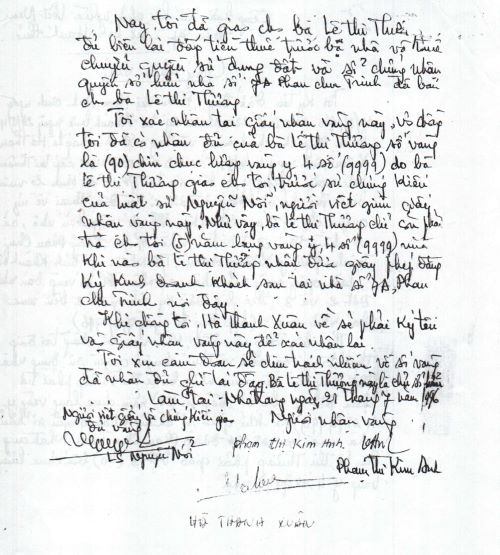 Nay, tôi đã giao cho bà Lê thị Thưởng
đủ biên lai đóng tiền thuế trước bạ nhà và thuế
chuyển quyền sử dụng đất và sổ chứng nhận
quyền sở hữu nhà số 7A Phan chu Trinh đã bán
cho bà Lê thị Thưởng.
Tôi xác nhận tại giấy nhận vàng này, vợ chồng
tôi đã có nhận đủ của bà Lê thị Thưởng số vàng
là (90) chín chục lượng vàng y 4 số (9999) do bà
Lê thị Thưởng giao cho tôi, trước sự chứng kiến
của luật sư Nguyễn Nối, người viết giùm giấy
nhận vàng này. Như vậy, bà Lê thị Thưởng chỉ còn phải
trả cho tôi (5) năm lượng vàng y 4 số (9999) nữa
khi nào bà Lê thị Thưởng nhận được giấy phép đăng
Ký Kinh doanh Khách sạn tại nhà số 7A Phan
chu Trinh nói đây.
Khi chồng tôi, Hà Thanh Xuân về sẽ phải Ký tên
vào giấy nhận vàng này để xác nhận lại.
Tôi xin cam đoan sẽ chịu trách nhiệm về số vàng
đã nhận đủ ghi tại đây. Bà Lê thị Thưởng này là chủ số
Làm tại Nha trang ngày 21 tháng 7 năm 1996
Người viết giấy và chứng kiến giao Người nhận vàng
đủ vàng
phạm thị Kim Anh.
LS Nguyễn Nối
Phạm Thị Kim Anh
HÀ THANH XUÂN